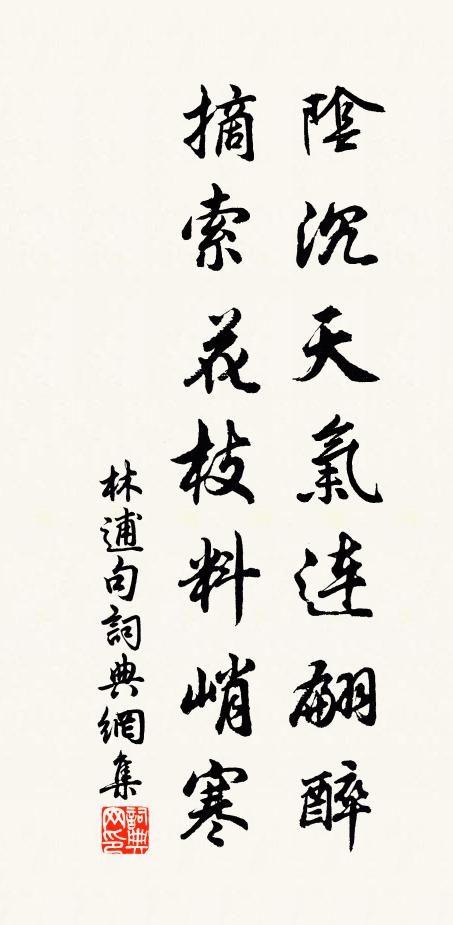 陰沉天氣連翩醉
摘索花枝料峭寒
林逋句詞典網集
詞典网印